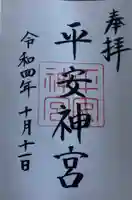 奉拝
平安神宮
令和四年 十月十一日